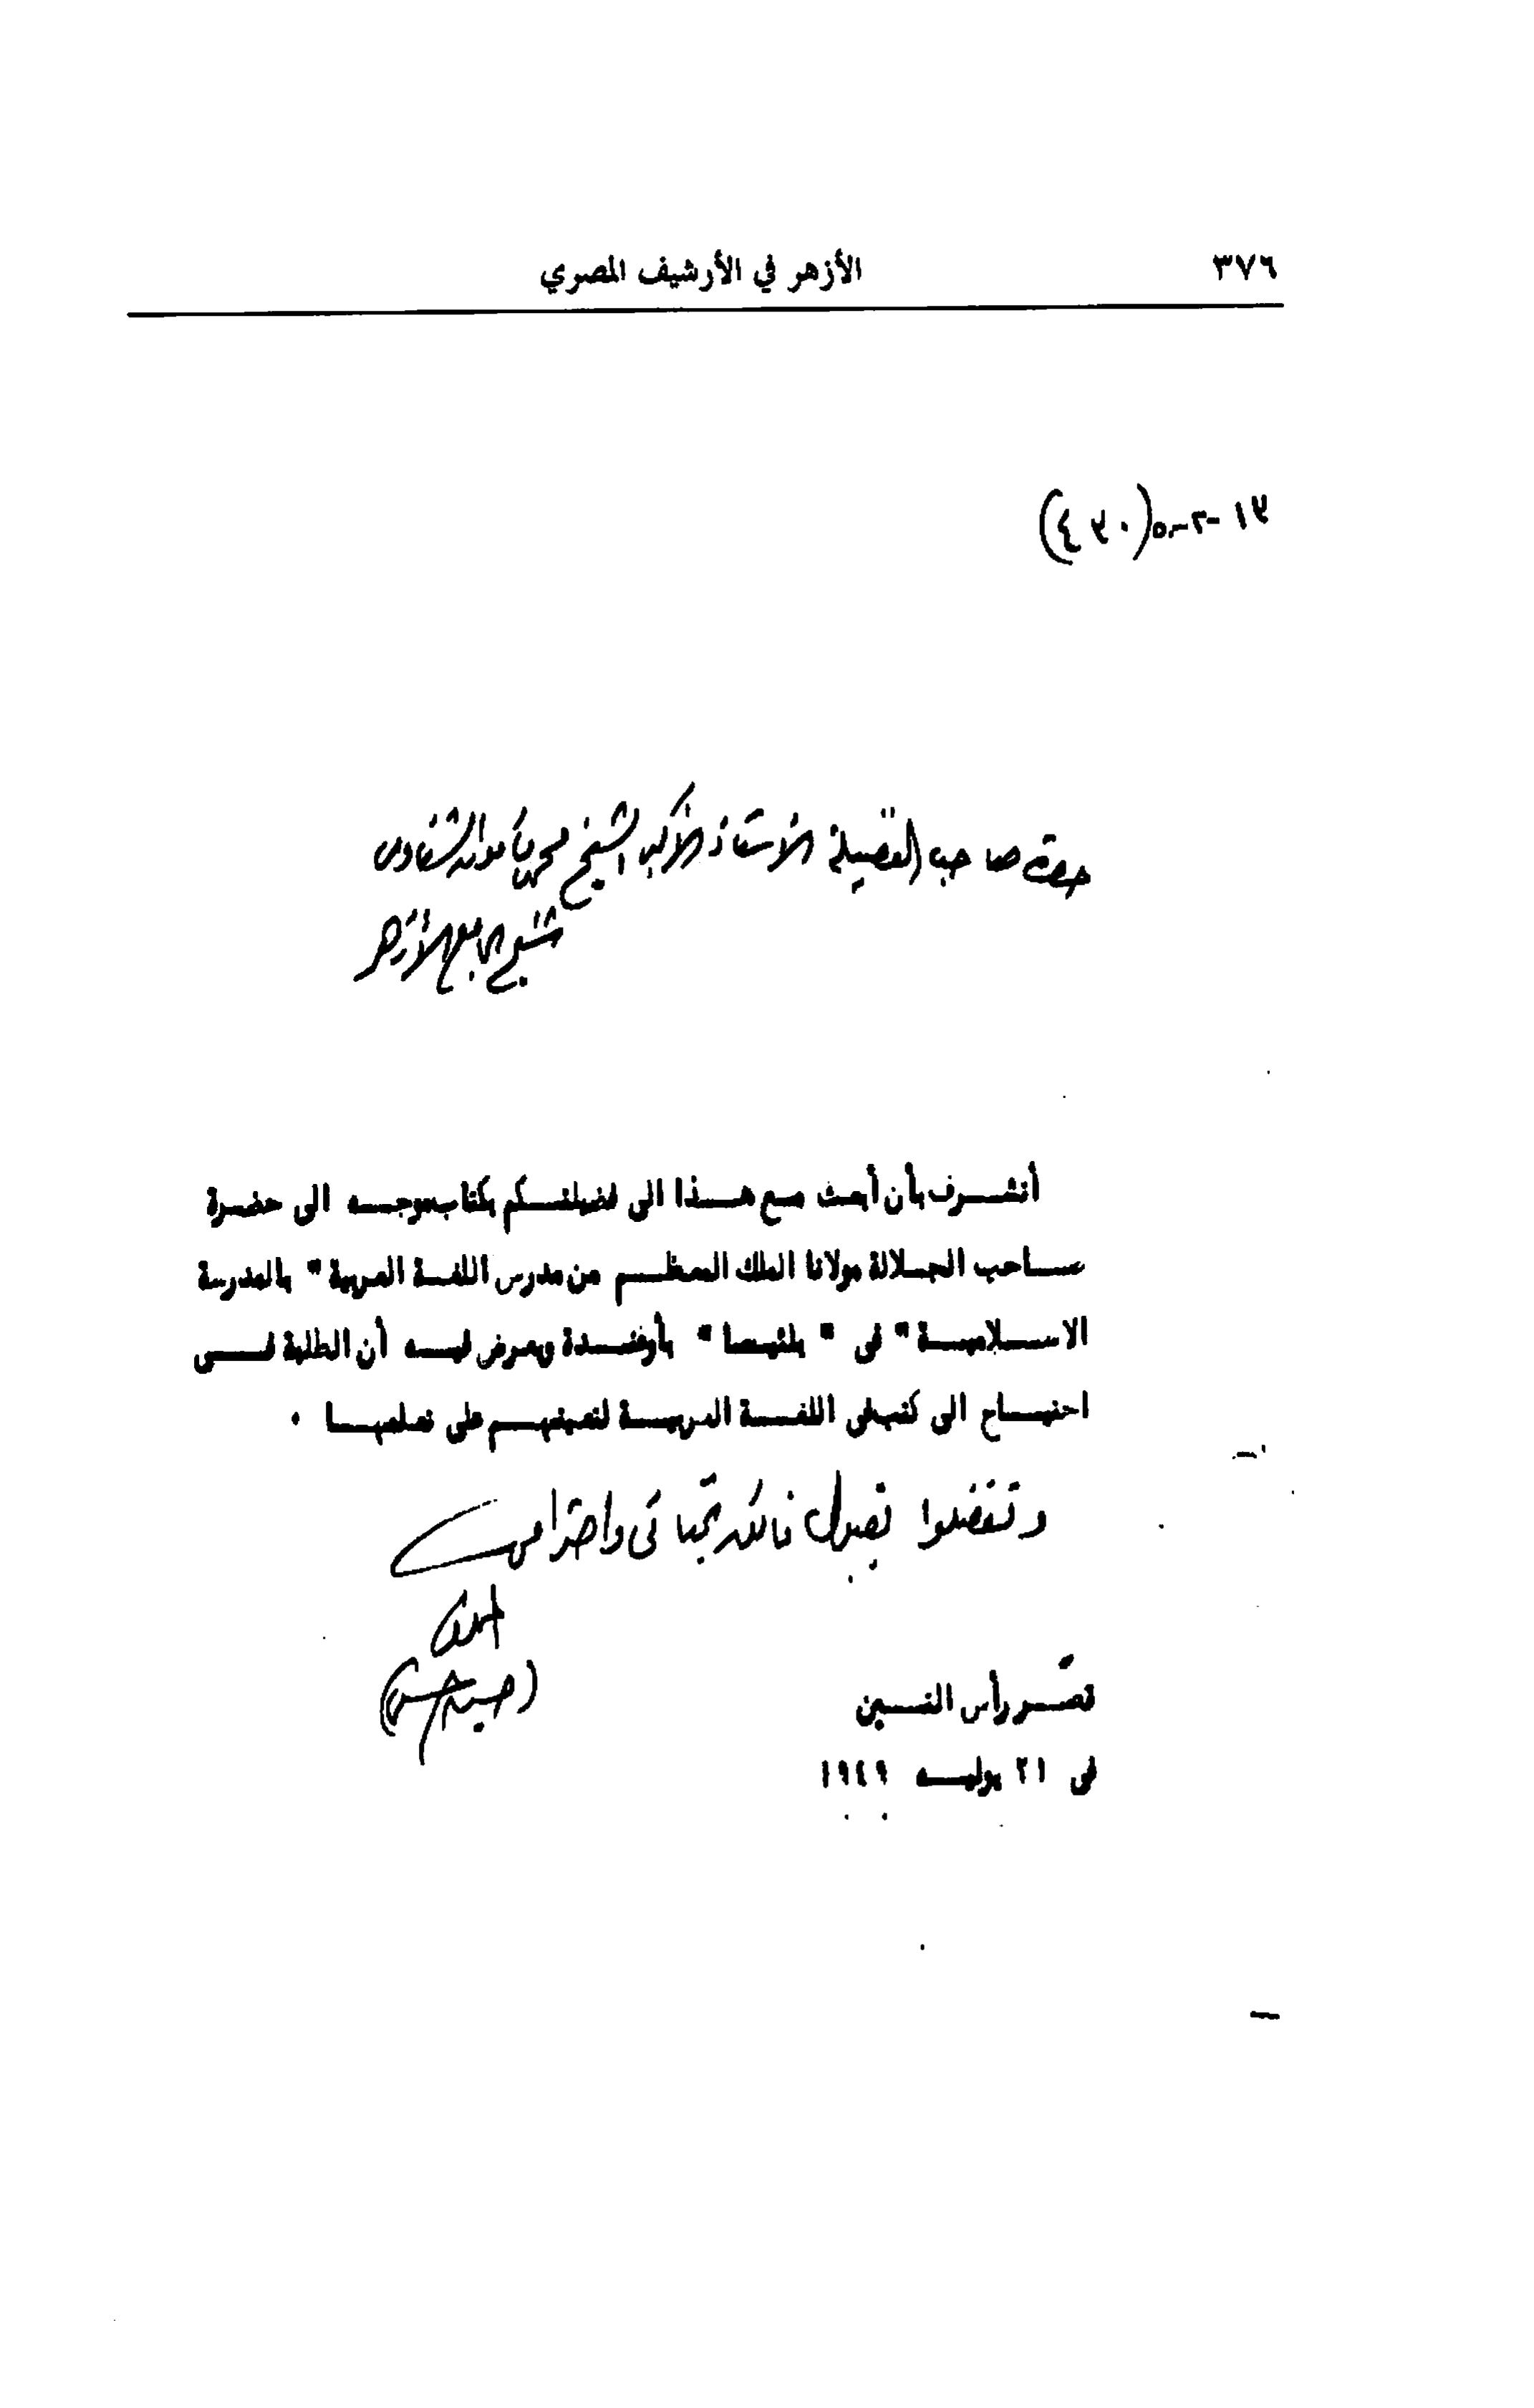 ٣٧٦
الأزهر في الأرشيف المصري
حضرة صاحب الفضيلة الأستاذ الأكبر الشيخ محمد مأمون الشناوى
شيخ الجامع الأزهر
أتشــرف بأن أبعث مــع هــذا الى فضيلتــكم بكتاب موجــه الى حضرة
صــاحب الجــلالة مولانا الملك المعظــم من مدرس اللغــة العربية " بالمدرسة
الاســلاميــة " فى " بلتيــما " بأوغنــدة ويعرض فيــه أن الطلبة فــى
احتيــاج الى كتب فى اللغــة العربيــة لتعينهــم على تعلمهــا ٠
وتفضلوا بقبول فائق تحياتى واحترامى
(حسين حسنى)
قصــر رأس التــين
فى ٢١ يوليــه ١٩٤٩